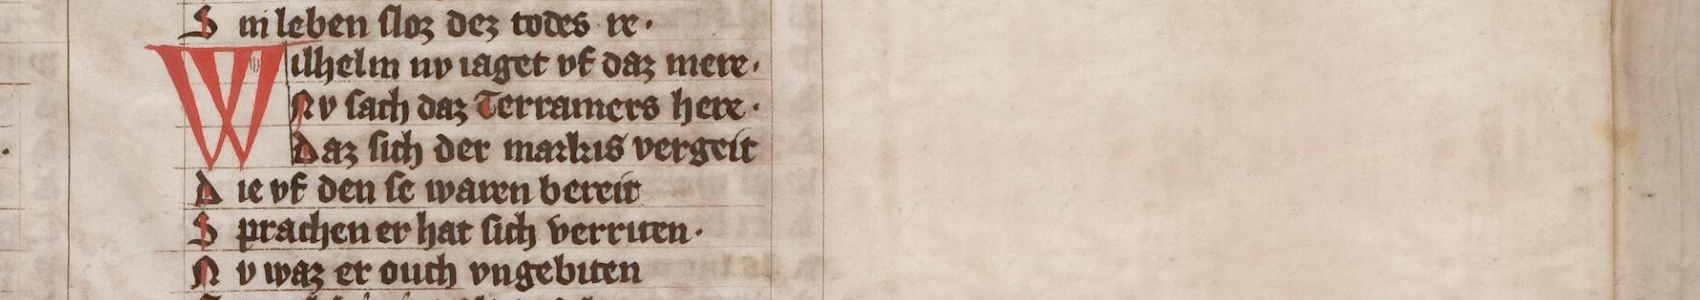 S in leben sloz dez todes re·
Wilhelm nv iaget vf daz mere·
Nv sach daz Terramers here·
Daz sich der markis vergeit
D ie vf den se waren bereit
S prachen er hat sich verriten·
N v waz er ouch vngebiten